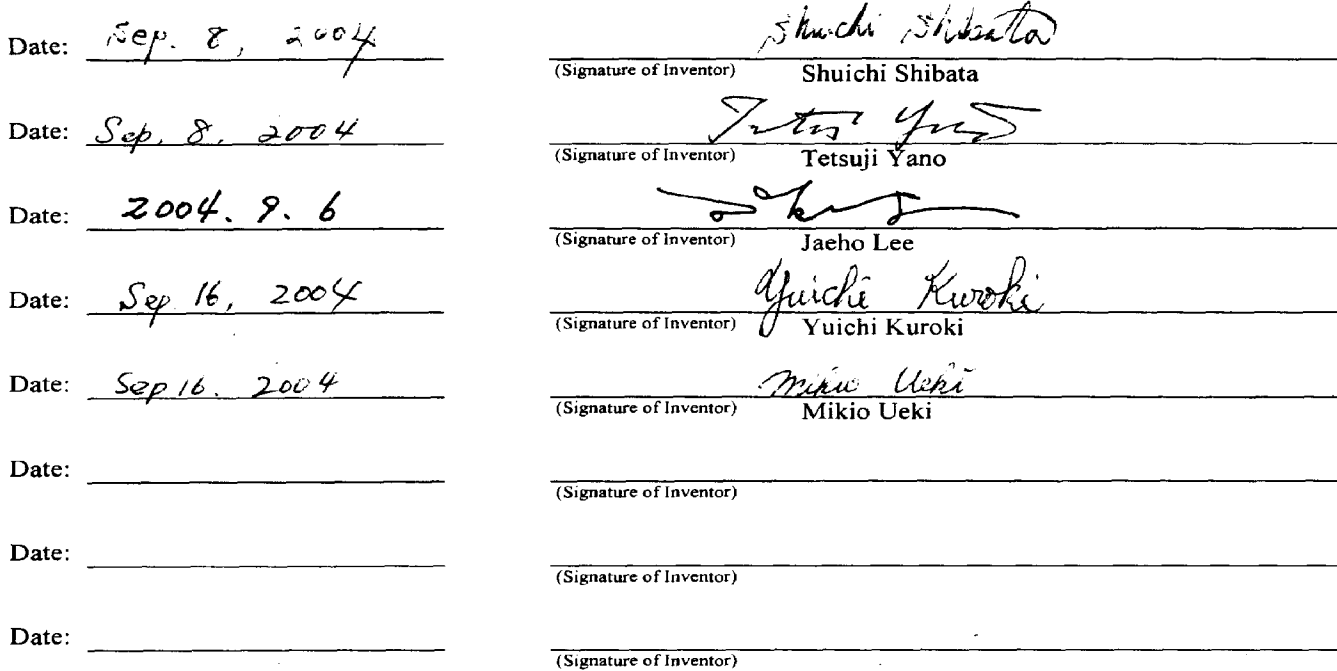 Date: Sep. 8, 2004 Shuichi Shibata
(Signature of Inventor) Shuichi Shibata
Date: Sep. 8, 2004 Tetsuji Yano
(Signature of Inventor) Tetsuji Yano
Date: 2004. 9. 6
(Signature of Inventor) Jaeho Lee
Date: Sep 16, 2004 Yuichi Kuroki
(Signature of Inventor) Yuichi Kuroki
Date: Sep 16. 2004 Mikio Ueki
(Signature of Inventor) Mikio Ueki
Date:
(Signature of Inventor)
Date:
(Signature of Inventor)
Date:
(Signature of Inventor)